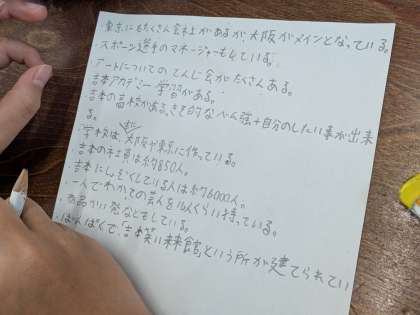 東京にもたくさん会社があるが大阪がメインとなっている。
・スポーツ選手のマネージャーもしている。
アートについてのてんじ会がたくさんある。
吉本アカデミー学習がある。
・吉本の高校がある、きそ的なべん強+自分のしたい事が出来
る。
・学校は、大阪や東京に作っている。
吉本の社員は約850人。
吉本にしょぞくしている人は約6000人。
・一人でわかての芸人を14人くらい持っている。
商品かい発などもしている。
・ばんぱくで、「吉本笑い未来館」という所が建てられてい